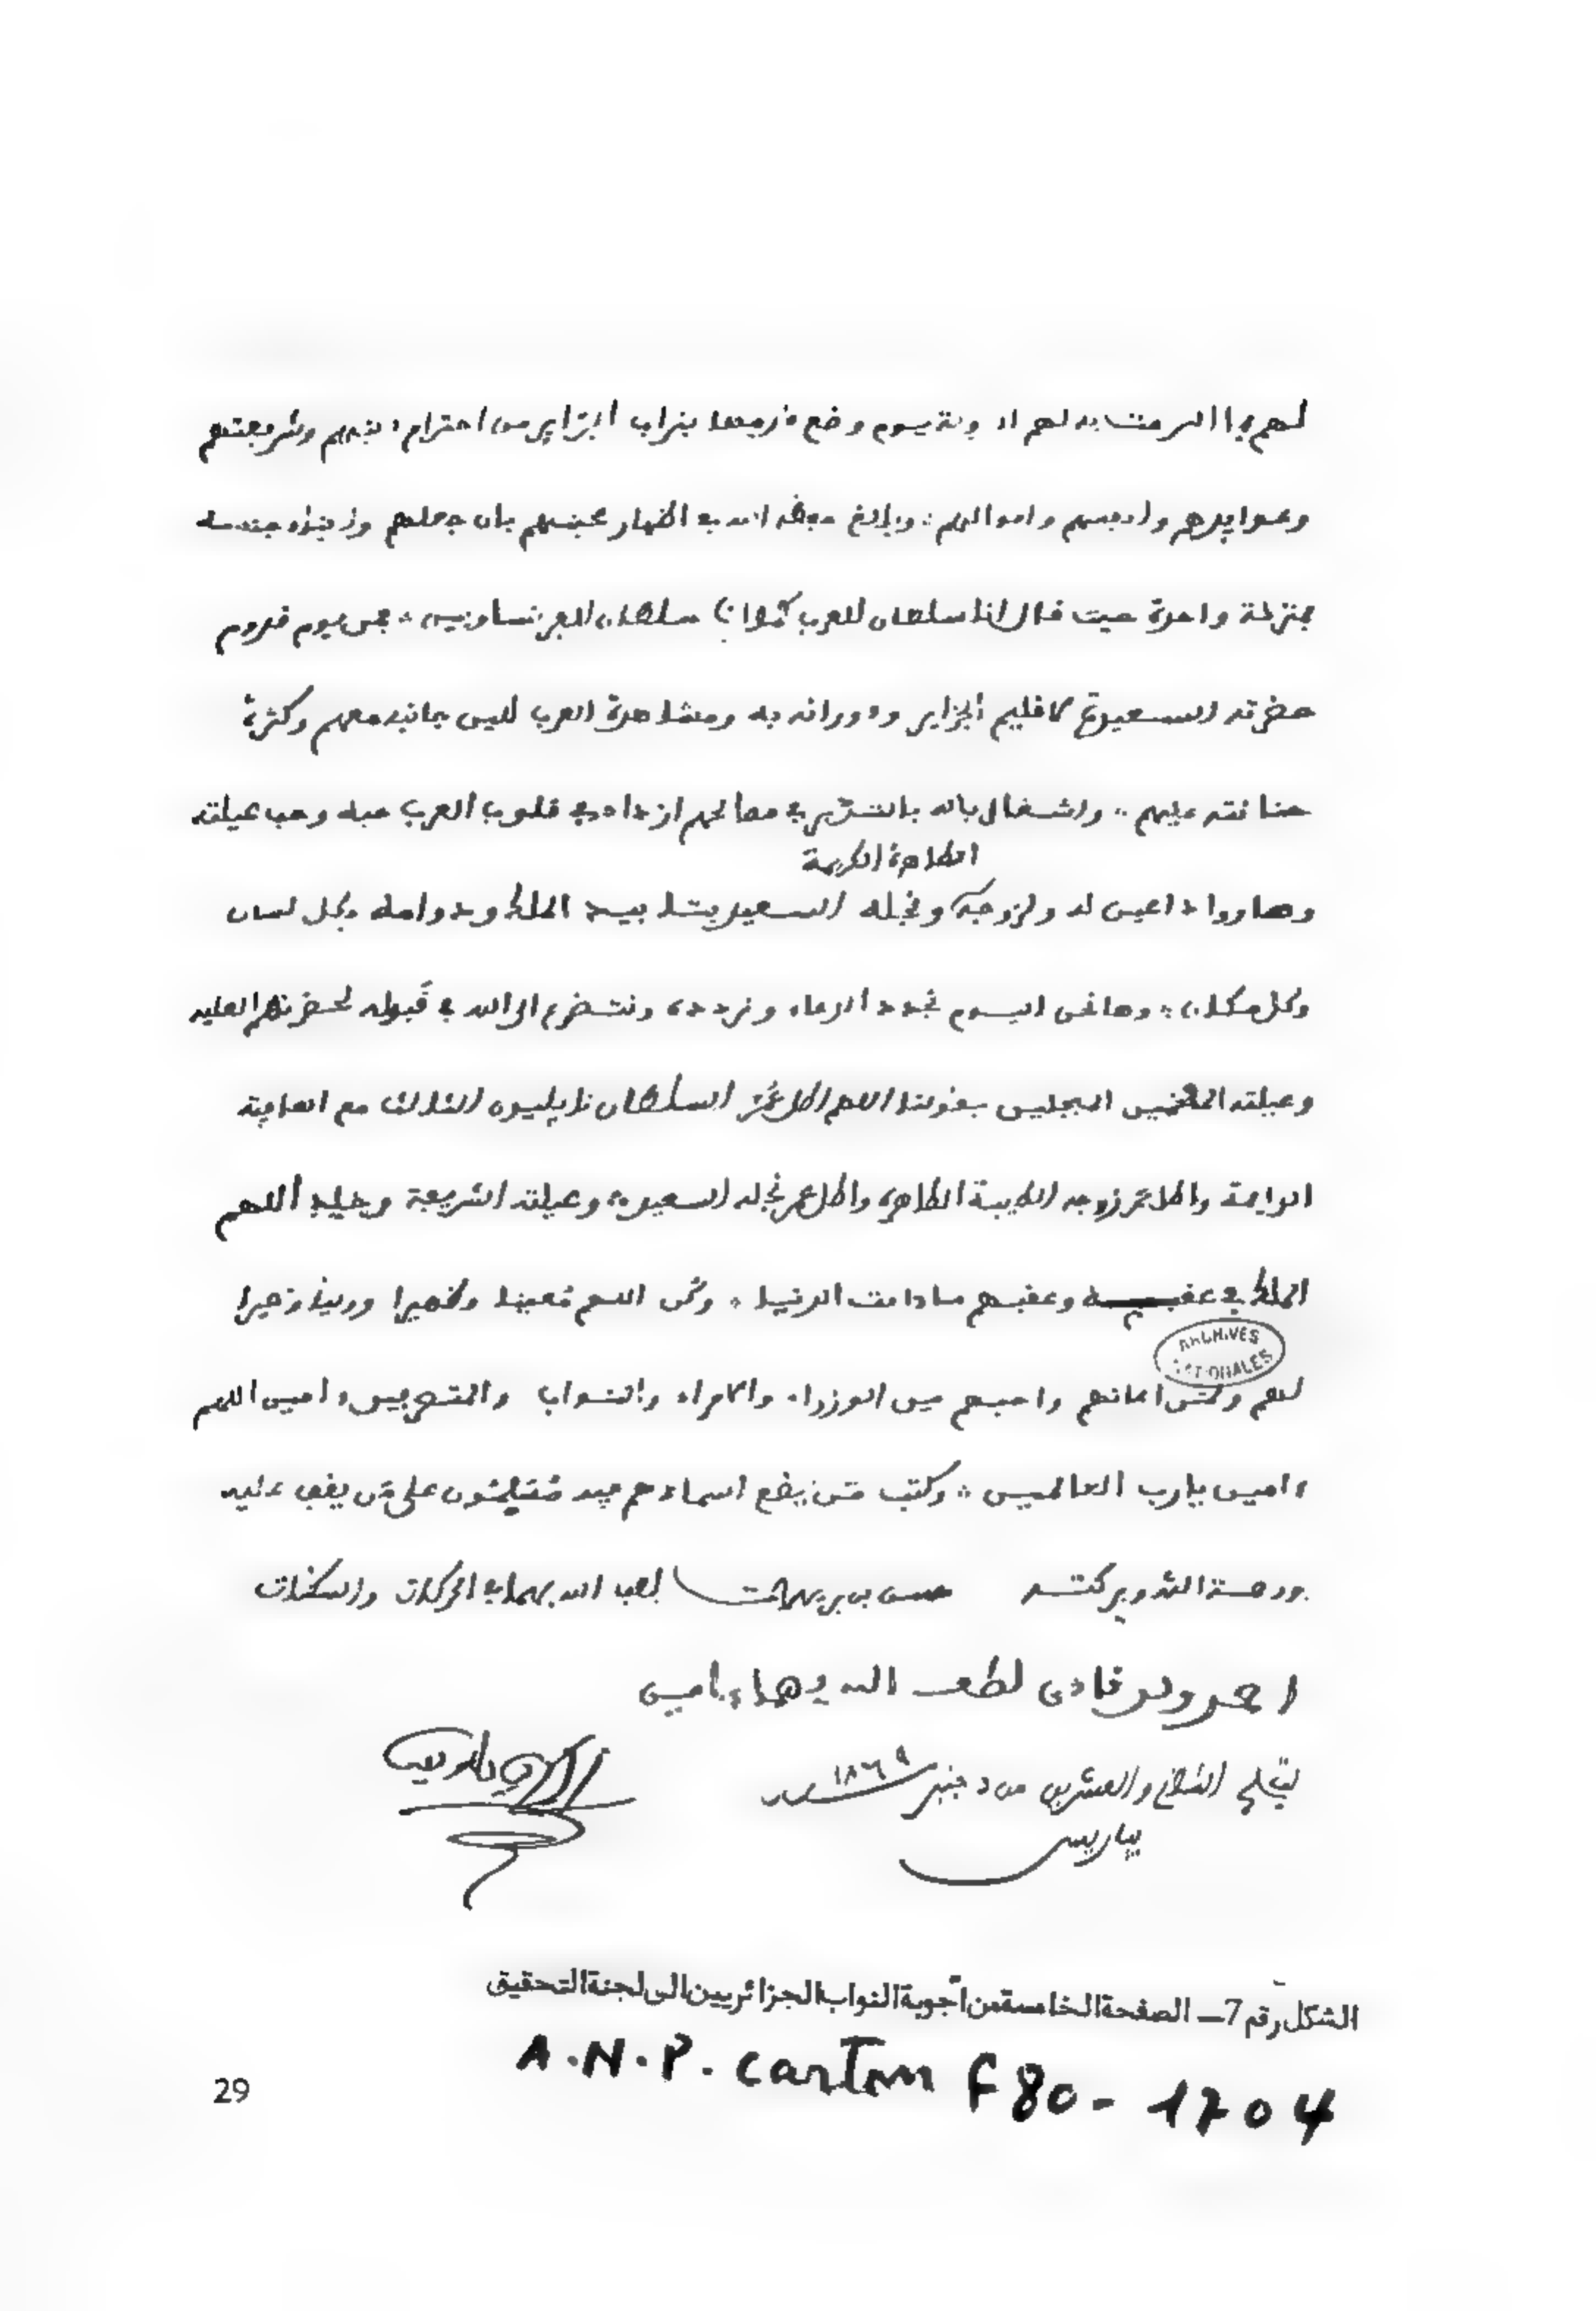 لهم بما التزمت به لهم يوم وضع قدمها بتراب الجزاير من احترام دينهم وشريعتهم
وعوايدهم واموالهم وبالغ وفقه الله في اظهار محبتهم بان جعلهم وابناء جنسه
بمنزلة واحدة حيث قال انا سلطان للعرب كما انا سلطان للفرنساويين فمن يوم قدوم
حضرته السعيدة لاقليم الجزاير ودورانه به ومشاهدة العرب لين جانبه معهم وكثرة
حنانته عليهم واشتغال باله بالتدبير في مصالحهم ازداد في قلوب العرب حبه وحب عيلته
الطاهرة الكريمة
وصاروا داعين له ولزوجته ونجله السعيد بتابيد الملك ودوامه بكل لسان
وكل مكان وها نحن اليوم نجدد الدعاء ونردده ونتضرع الى الله في قبوله لحضرتهم العلية
وعيلته المبجلين بقولنا اللهم اطل عمر السلطان نابليون الثالث مع العافية
الدايمة واطل عمر زوجه الطيبة الطاهرة واطل عمر نجله السعيد وعيلته الشريفة وخلد اللهم
الملك في عقبه وعقبهم ما دامت الدنيا وكن اللهم معينا ونصيرا
لهم ولمن اعانهم واحبهم من الوزراء والامراء والنواب والمتصرفين ءامين اللهم
ءامين يارب العالمين وكتب من يضع اسماءهم فيه مسلمون على من يقف عليه
ورحمة الله وبركته حسن بن بريهمات لطف الله بهما في الحركات والسكنات
احمد ولد قاضي لطف الله بهما ءامين
والعشرين من دجنبر سنة ١٨٦٩
بباريس
الشكل رقم 7 – الصفحة الخامسة من أجوبة النواب الجزائريين الى لجنة التحقيق
A.N.P. carton F 80 - 1704
29
ARCHIVES NATIONALES